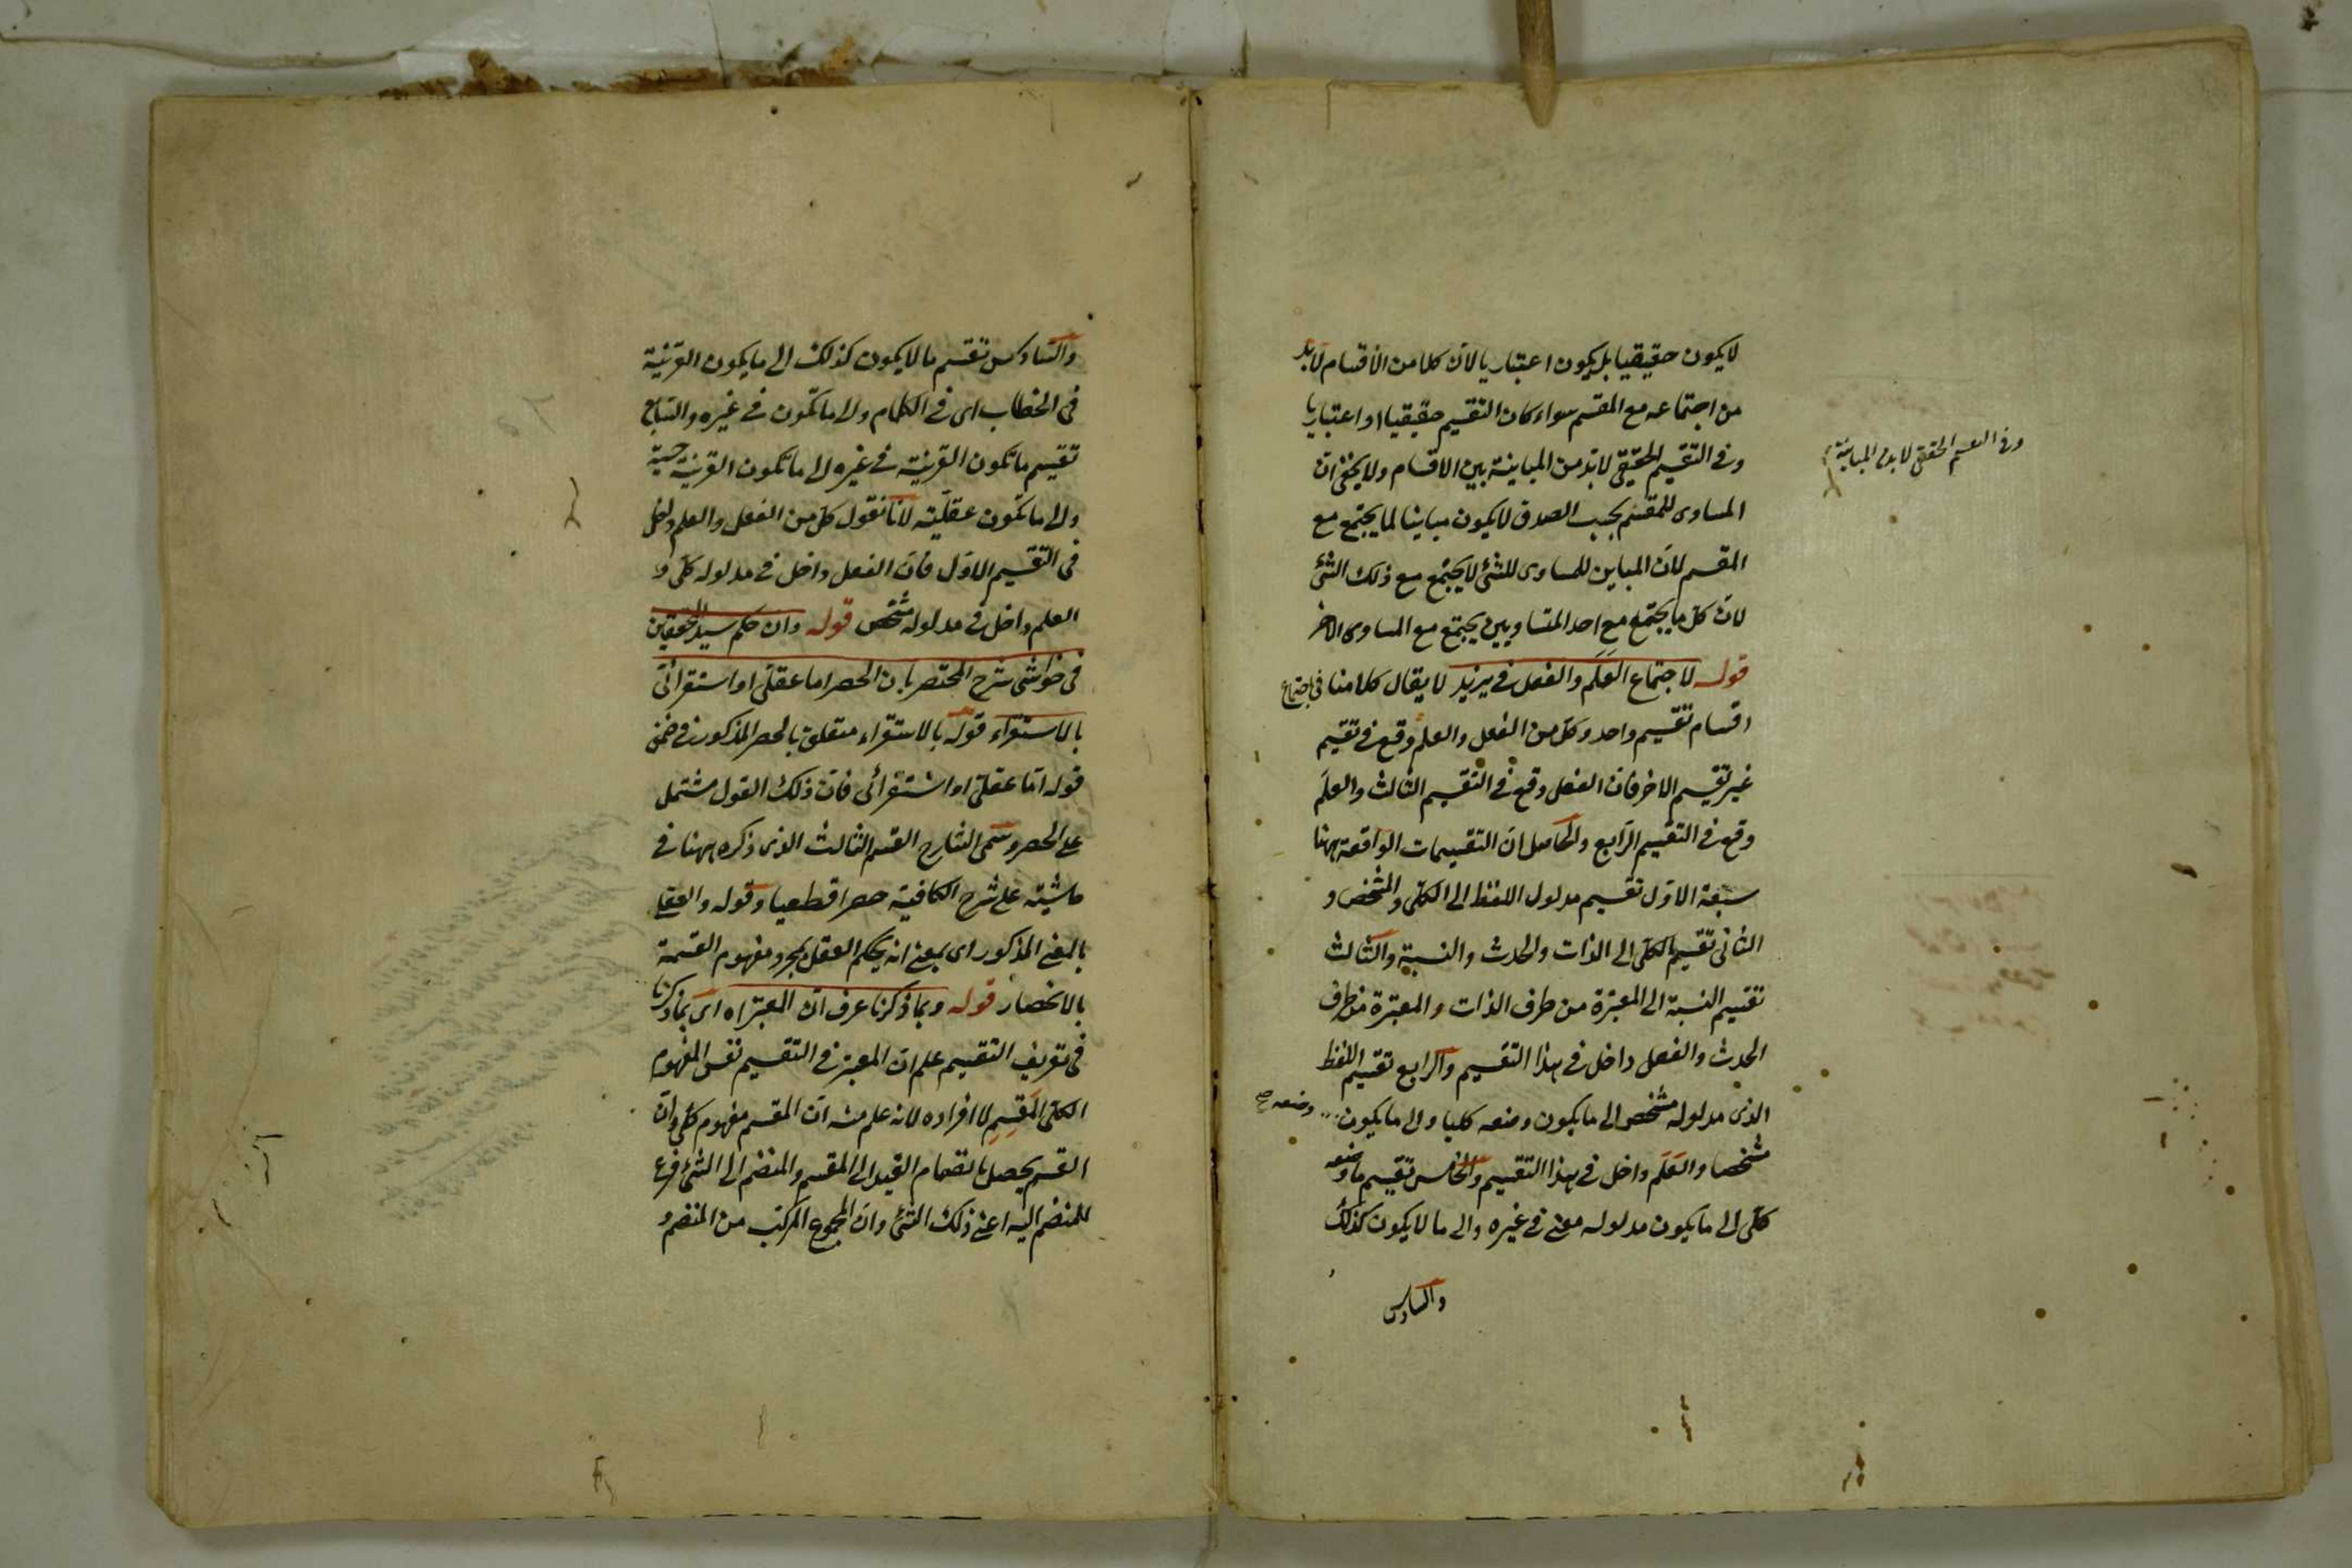 لا يكون حقيقيا بل يكون اعتباريا لان كلا من الاقسام لابد
من اجتماعه مع المقسم سواء كان التقسيم حقيقيا او اعتباريا
وفى التقسيم الحقيقى لابد من المباينة بين الاقسام ولا يخفى ان
المساوى للمقسم بحسب الصدق لا يكون مباينا لما يجتمع مع
المقسم لان المباين للمساوى للشئ لا يجتمع مع ذلك الشئ
لان كل ما يجتمع مع احد المتساويين يجتمع مع المساوى الاخر
قوله لاجتماع العلم والفعل فى يزيد لا يقال كلامنا فى اجتماع
اقسام تقسيم واحد وكل من الفعل والعلم وقع فى تقسيم
غير تقسيم الاخر فان الفعل وقع فى التقسيم الثالث والعلم
وقع فى التقسيم الرابع والحاصل ان التقسيمات الواقعة ههنا
سبعة الاول تقسيم مدلول اللفظ الى الكلى والمشخص و
الثانى تقسيم الكلى الى الذات والحدث والنسبة والثالث
تقسيم النسبة الى المعتبرة من طرف الذات والمعتبرة من طرف
الحدث والفعل داخل فى هذا التقسيم والرابع تقسيم اللفظ
الذى مدلوله مشخص الى ما يكون وضعه كليا والى ما يكون وضعه صح
مشخصا والعلم داخل فى هذا التقسيم والخامس تقسيم ما وضعه
كلى الى ما يكون مدلوله معنى فى غيره والى ما لا يكون كذلك
والسادس
وفى التقسيم الحقيقى لابد من المباينة
والسادس تقسيم ما لا يكون كذلك الى ما يكون القرينة
فى الخطاب اى فى الكلام والى ما تكون فى غيره والسابع
تقسيم ما تكون القرينة فى غيره الى ما تكون القرينة حسية
والى ما تكون عقلية لانا نقول كل من الفعل والعلم داخل
فى التقسيم الاول فان الفعل داخل فى مدلوله كلى و
العلم داخل فى مدلوله مشخص قوله وان حكم سيد المحققين
فى حواشى شرح المختصر بان الحصر اما عقلى او استقرائى
بالاستقراء قوله بالاستقراء متعلق بالحصر المذكور فى ضمن
قوله اما عقلى او استقرائى فان ذلك القول مشتمل
على الحصر وسمى الشارح القسم الثالث الذى ذكره ههنا فى
حاشيته على شرح الكافية حصرا قطعيا وقوله والعقلى
بالمعنى المذكور اى بمعنى انه يحكم العقل بمجرد مفهوم القسمة
بالانحصار قوله وبما ذكرنا عرف ان المعتبر اه اى بما ذكرنا
فى تعريف التقسيم علم ان المعتبر فى التقسيم نفس المفهوم
الكلى المقسم لا افراده لانه علم منه ان المقسم مفهوم كلى وان
القسم يحصل بانضمام القيد الى المقسم والمنضم الى الشئ فرع
للمنضم اليه اعنى ذلك الشئ وان المجموع المركب من المنضم و